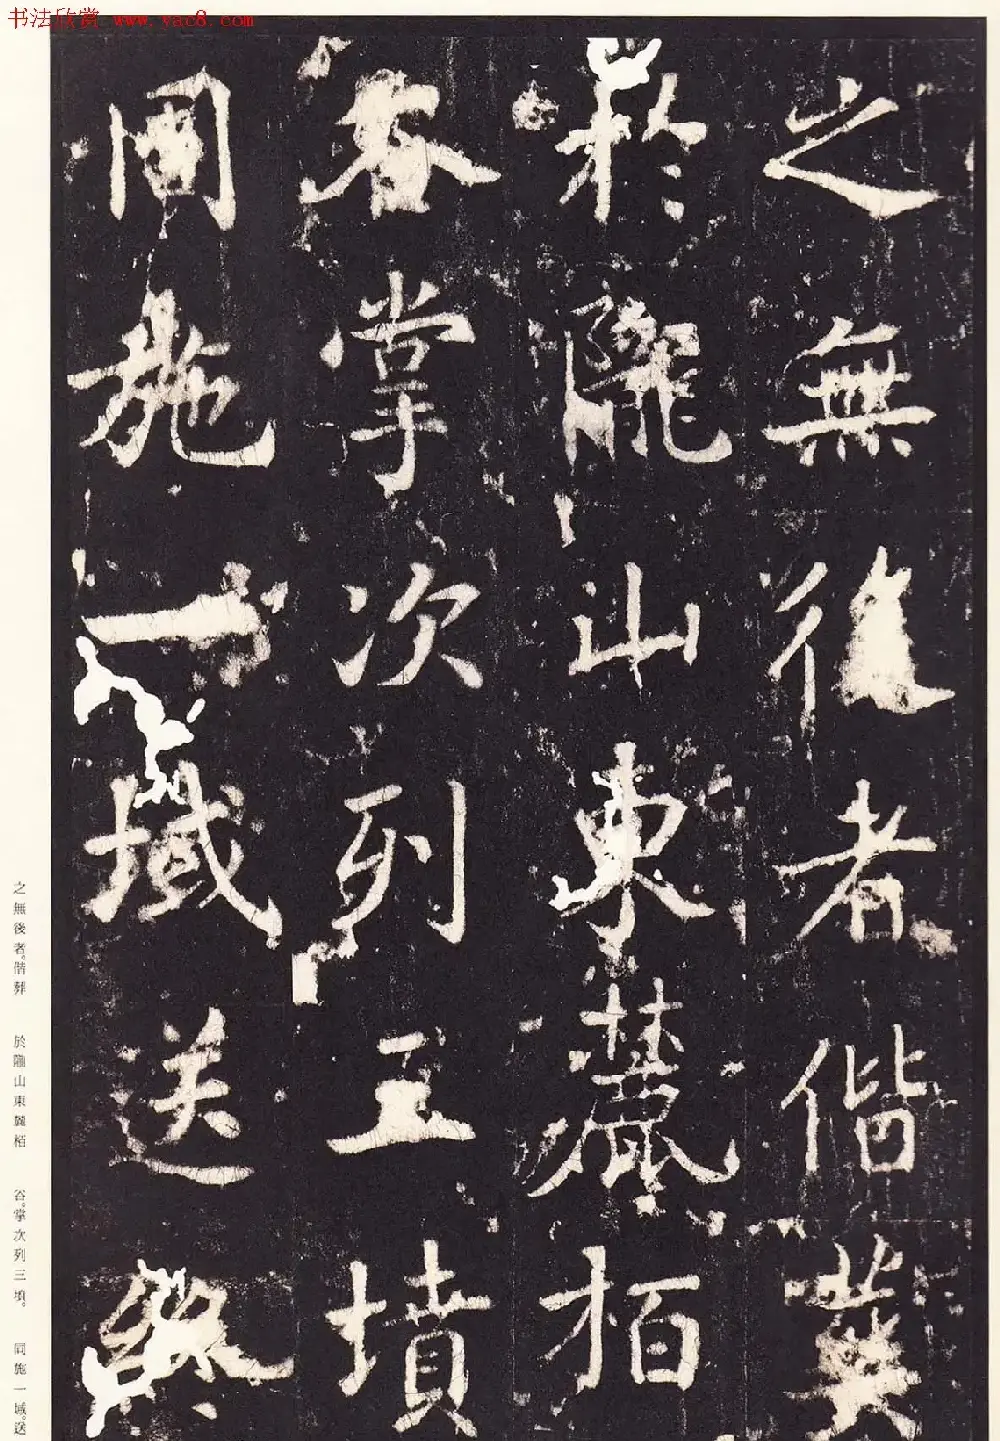 书法欣赏 www.yac8.com
之無後者偕葬
於隴山東麓栢
谷掌次列三墳
同施一域送終
之無後者。偕葬
於隴山東麓栢
谷。掌次列三墳。
同施一域。送